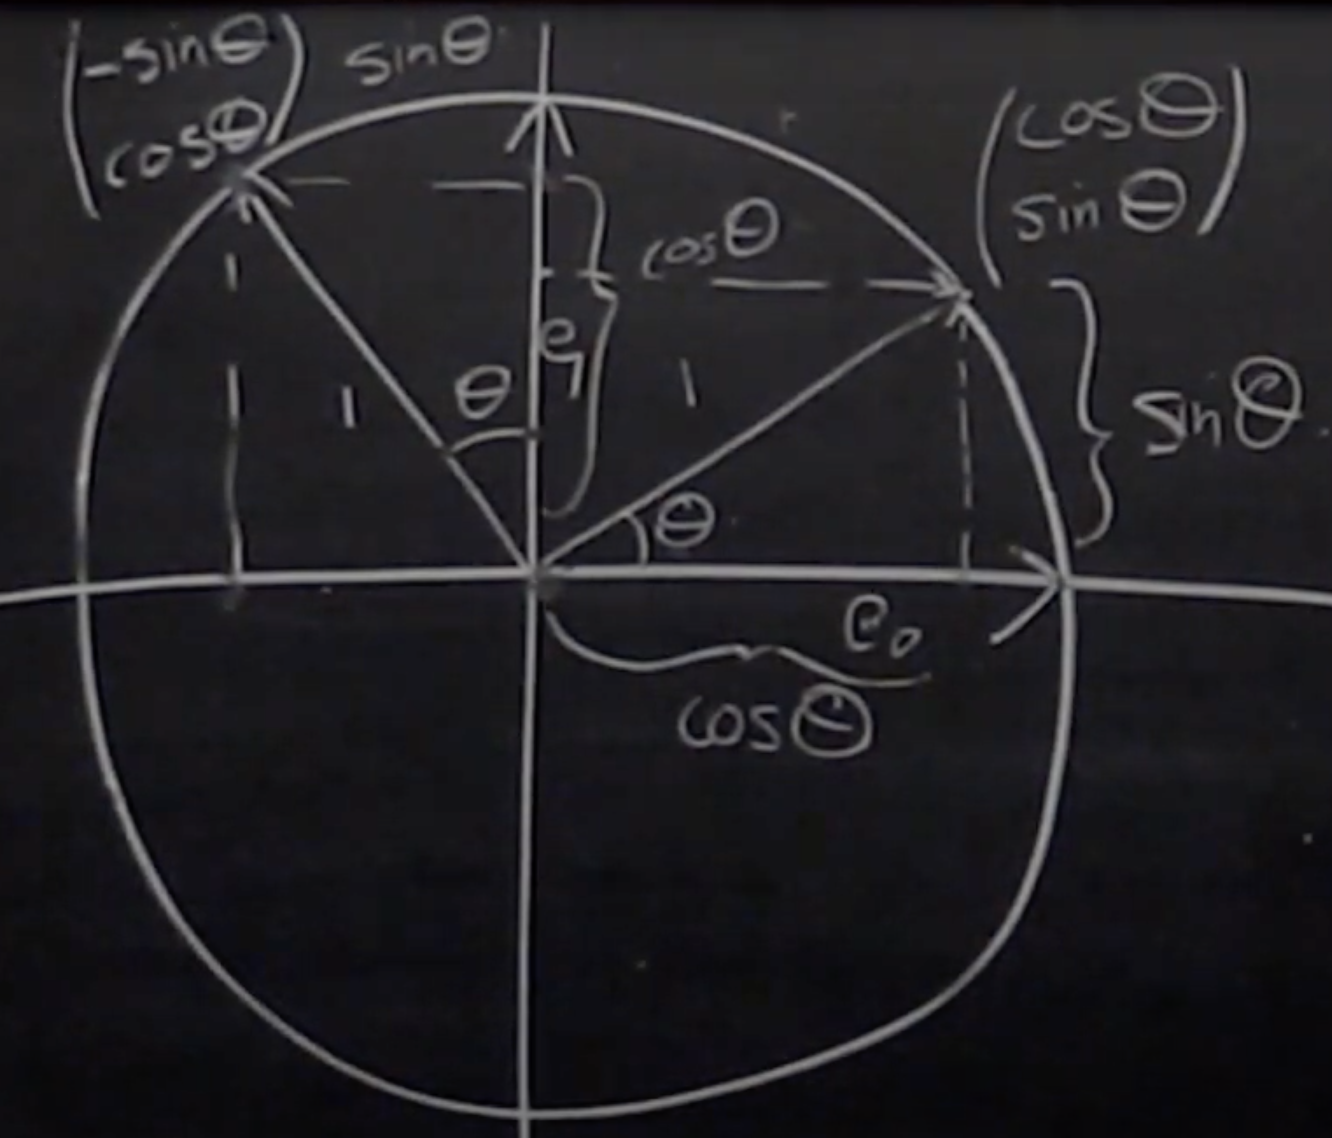 (-sinθ
cosθ)
sinθ
(cosθ
sinθ)
cosθ
e1
θ
1
1
sinθ
θ
e0
cosθ